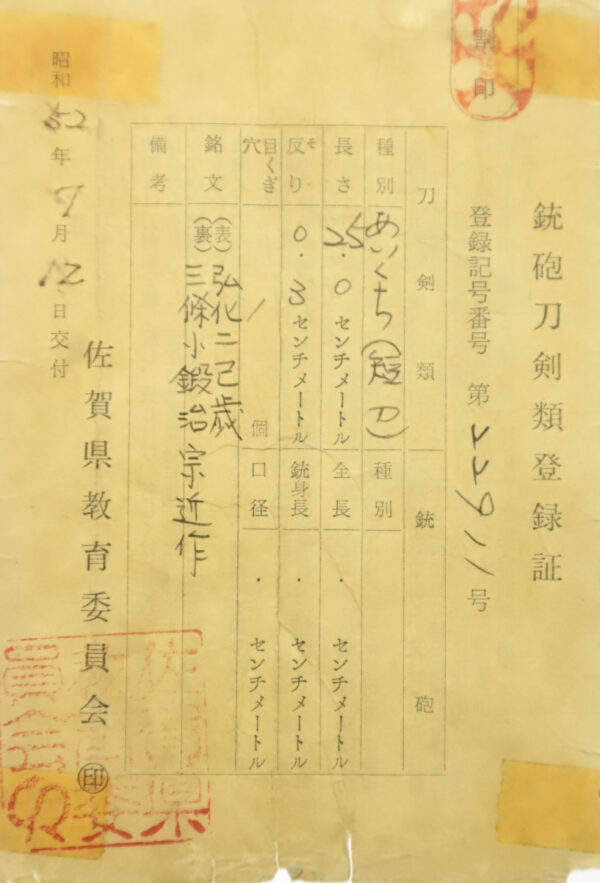 割印
銃砲刀剣類登録証
登録記号番号 第 22911 号
刀剣類
銃砲
種別 あいくち(短刀)
種別
長さ 25.0センチメートル
全長 ・ センチメートル
反り そ 0.3センチメートル
銃身長 ・ センチメートル
目くぎ穴 1 個
口径 ・ センチメートル
銘文 (表) 弘化二己歳
(裏) 三條小鍛治宗近作
備考
佐賀県教育委員会 印
昭和52年9月12日交付